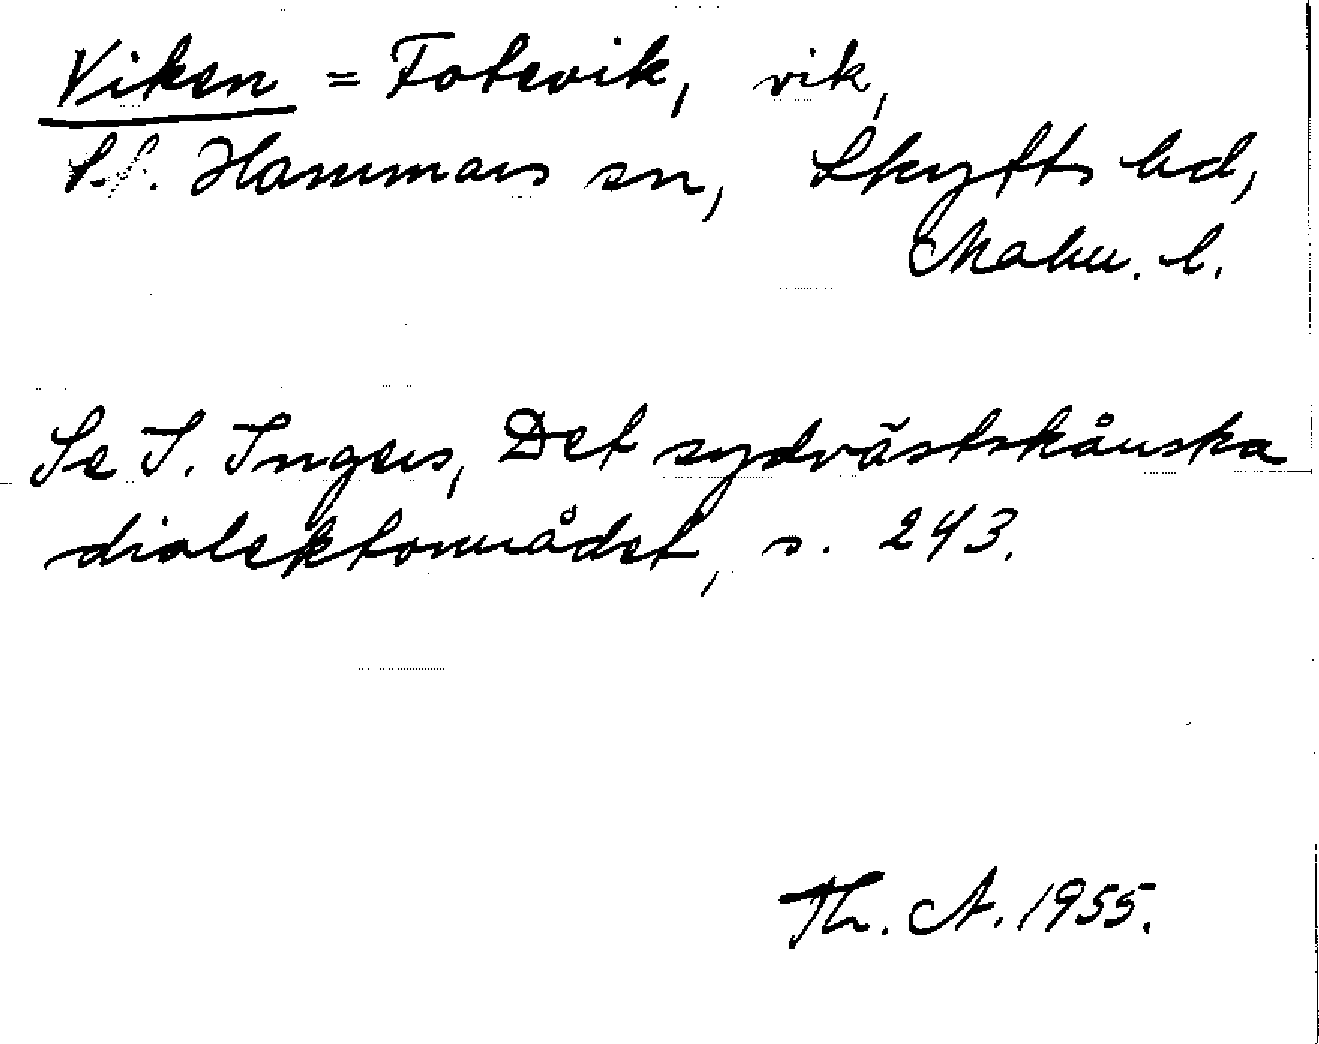 Viken = Fotevik, vik,
St. Hammars sn, Skytts hd,
Malm. l.
Se I. Ingers, Det sydvästskånska
dialektområdet, s. 243.
Th. A. 1955.